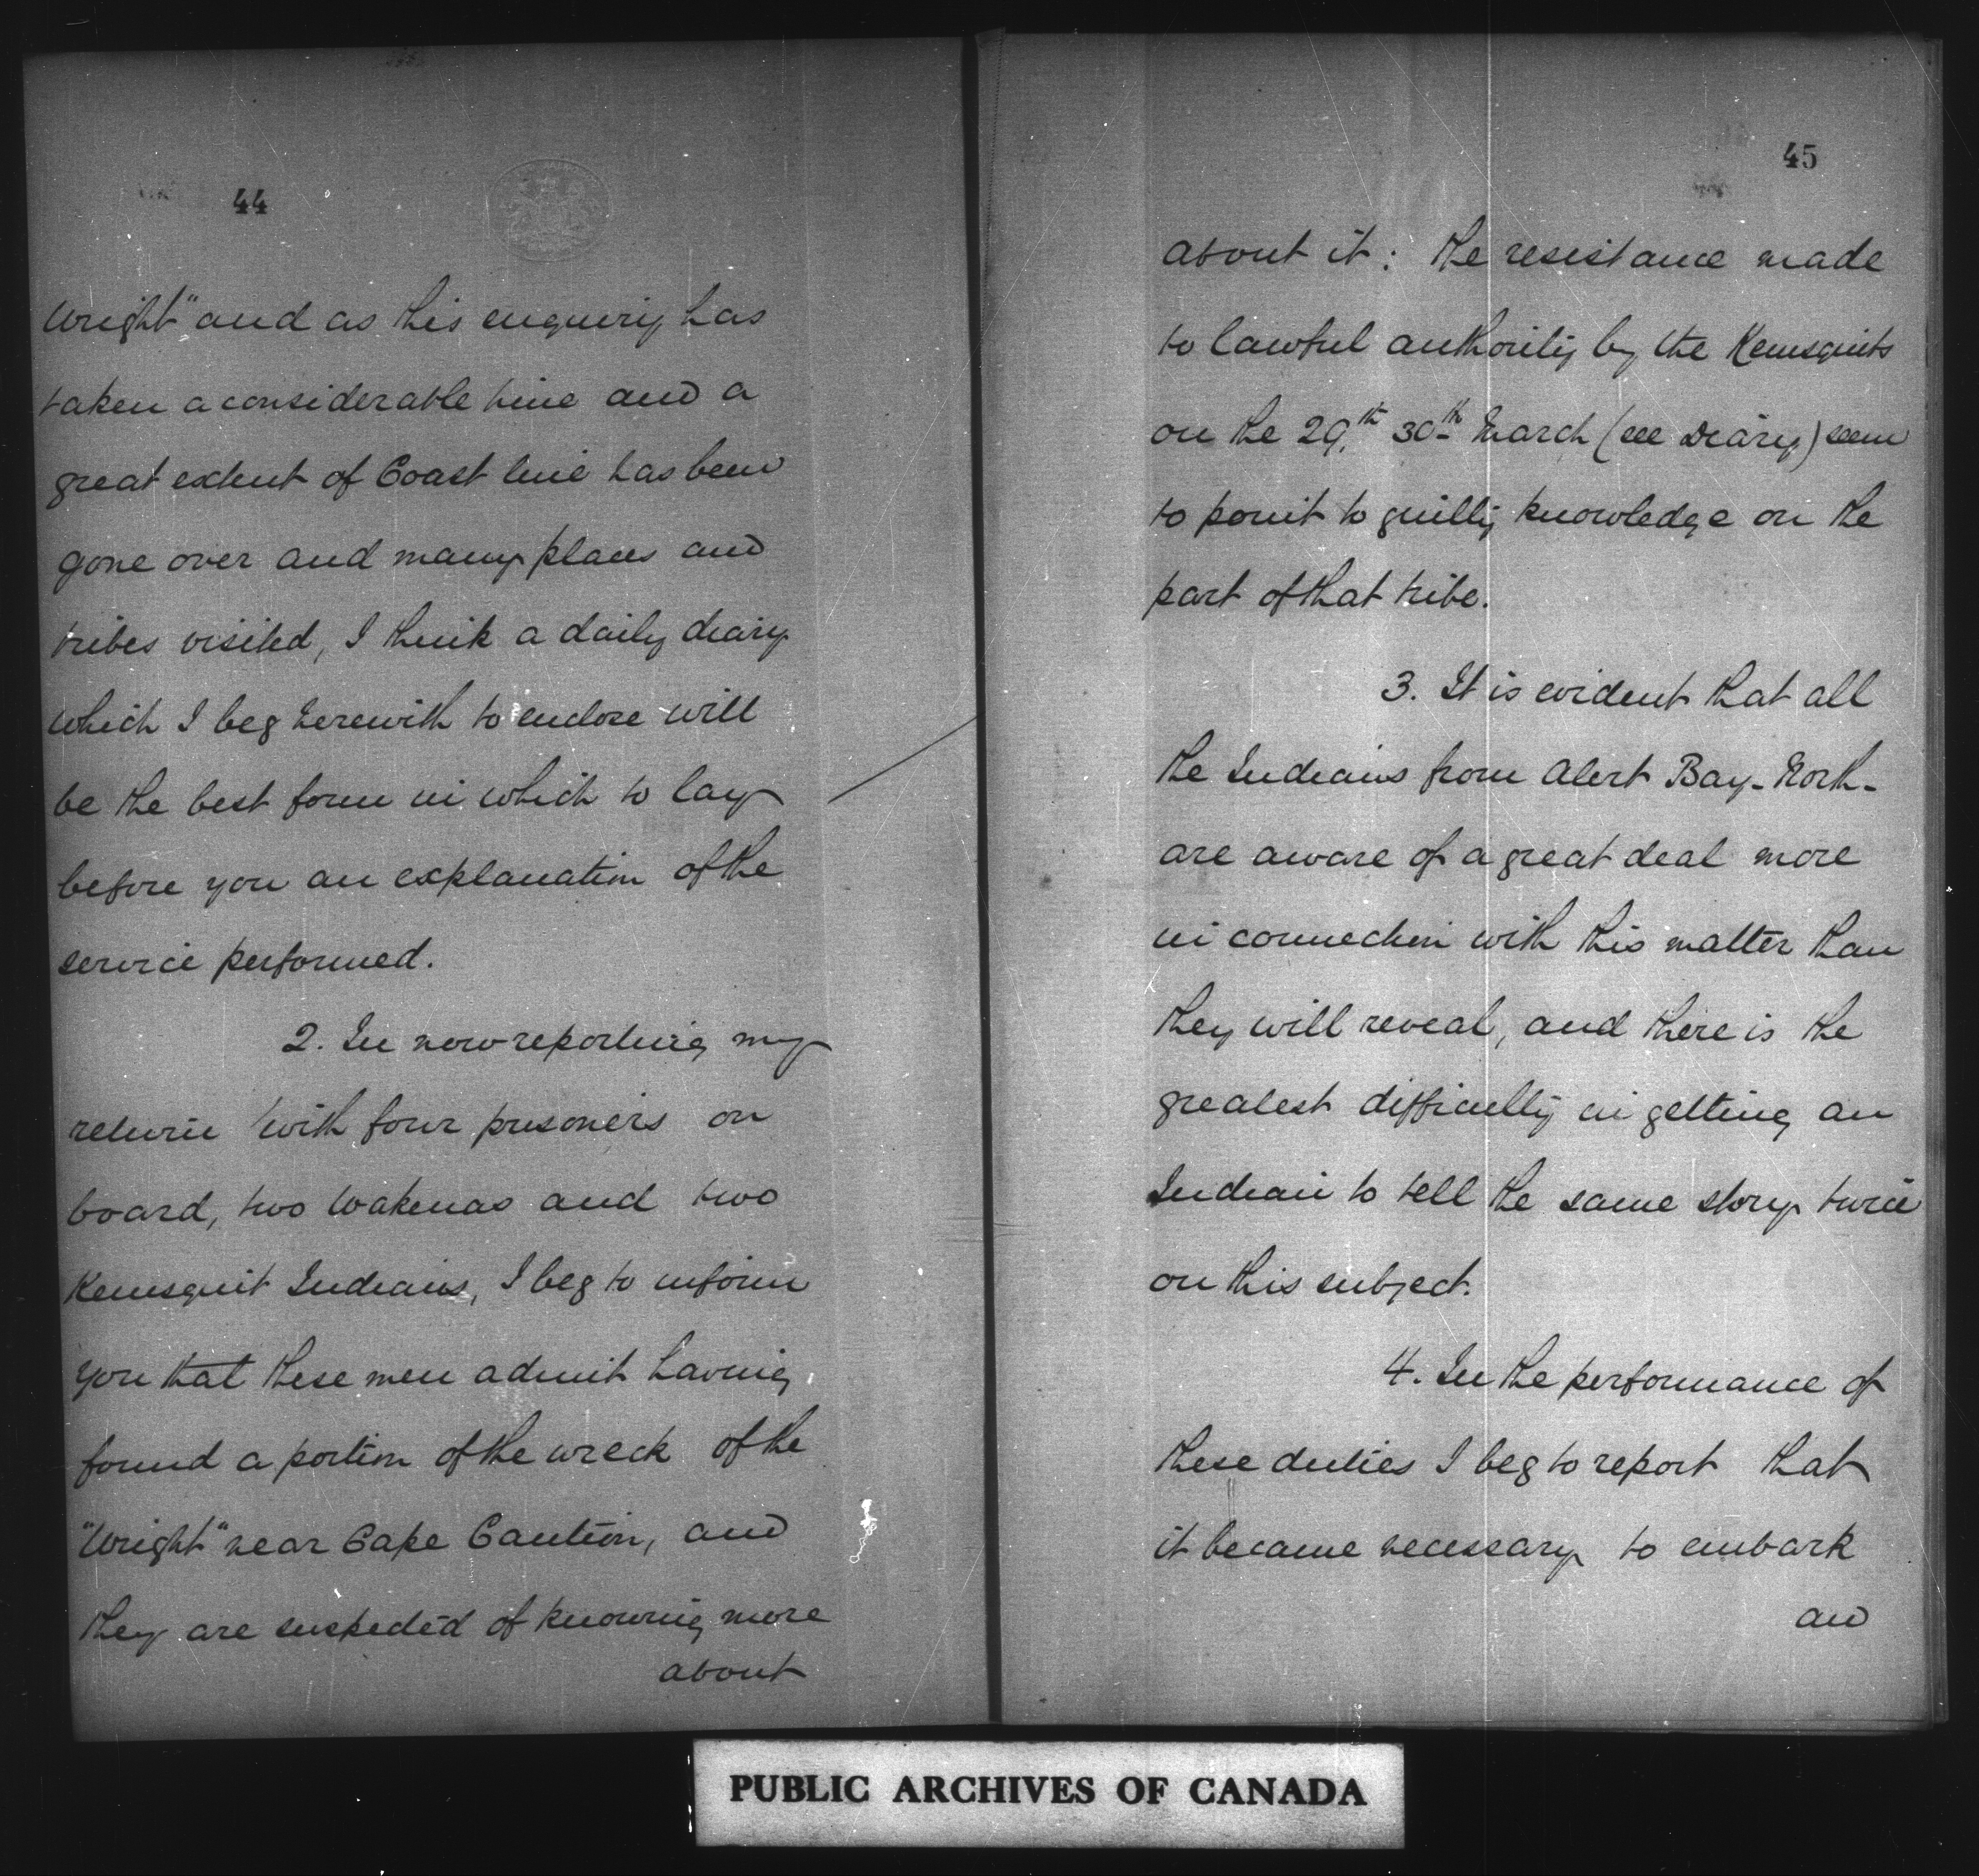 44
Wright" and as this enquiry has
taken a considerable time and a
great extent of Coast line has been
gone over and many places and
tribes visited, I think a daily diary
which I beg herewith to enclose will
be the best form in which to lay
before you an explanation of the
service performed.
2. In now reporting my
return with four prisoners on
board, two Wakenas and two
Kemsquit Indians, I beg to inform
you that these men admit having
found a portion of the wreck of the
"Wright" near Cape Caution, and
they are suspected of knowing more
about
45
about it: the resistance made
to lawful authority by the Kemsquits
on the 29th 30th March (see Diary) seem
to point to guilty knowledge on the
part of that tribe.
3. It is evident that all
the Indians from Alert Bay - North -
are aware of a great deal more
in connection with this matter than
they will reveal, and there is the
greatest difficulty in getting an
Indian to tell the same story twice
on this subject.
4. In the performance of
these duties I beg to report that
it became necessary to embark
an
PUBLIC ARCHIVES OF CANADA